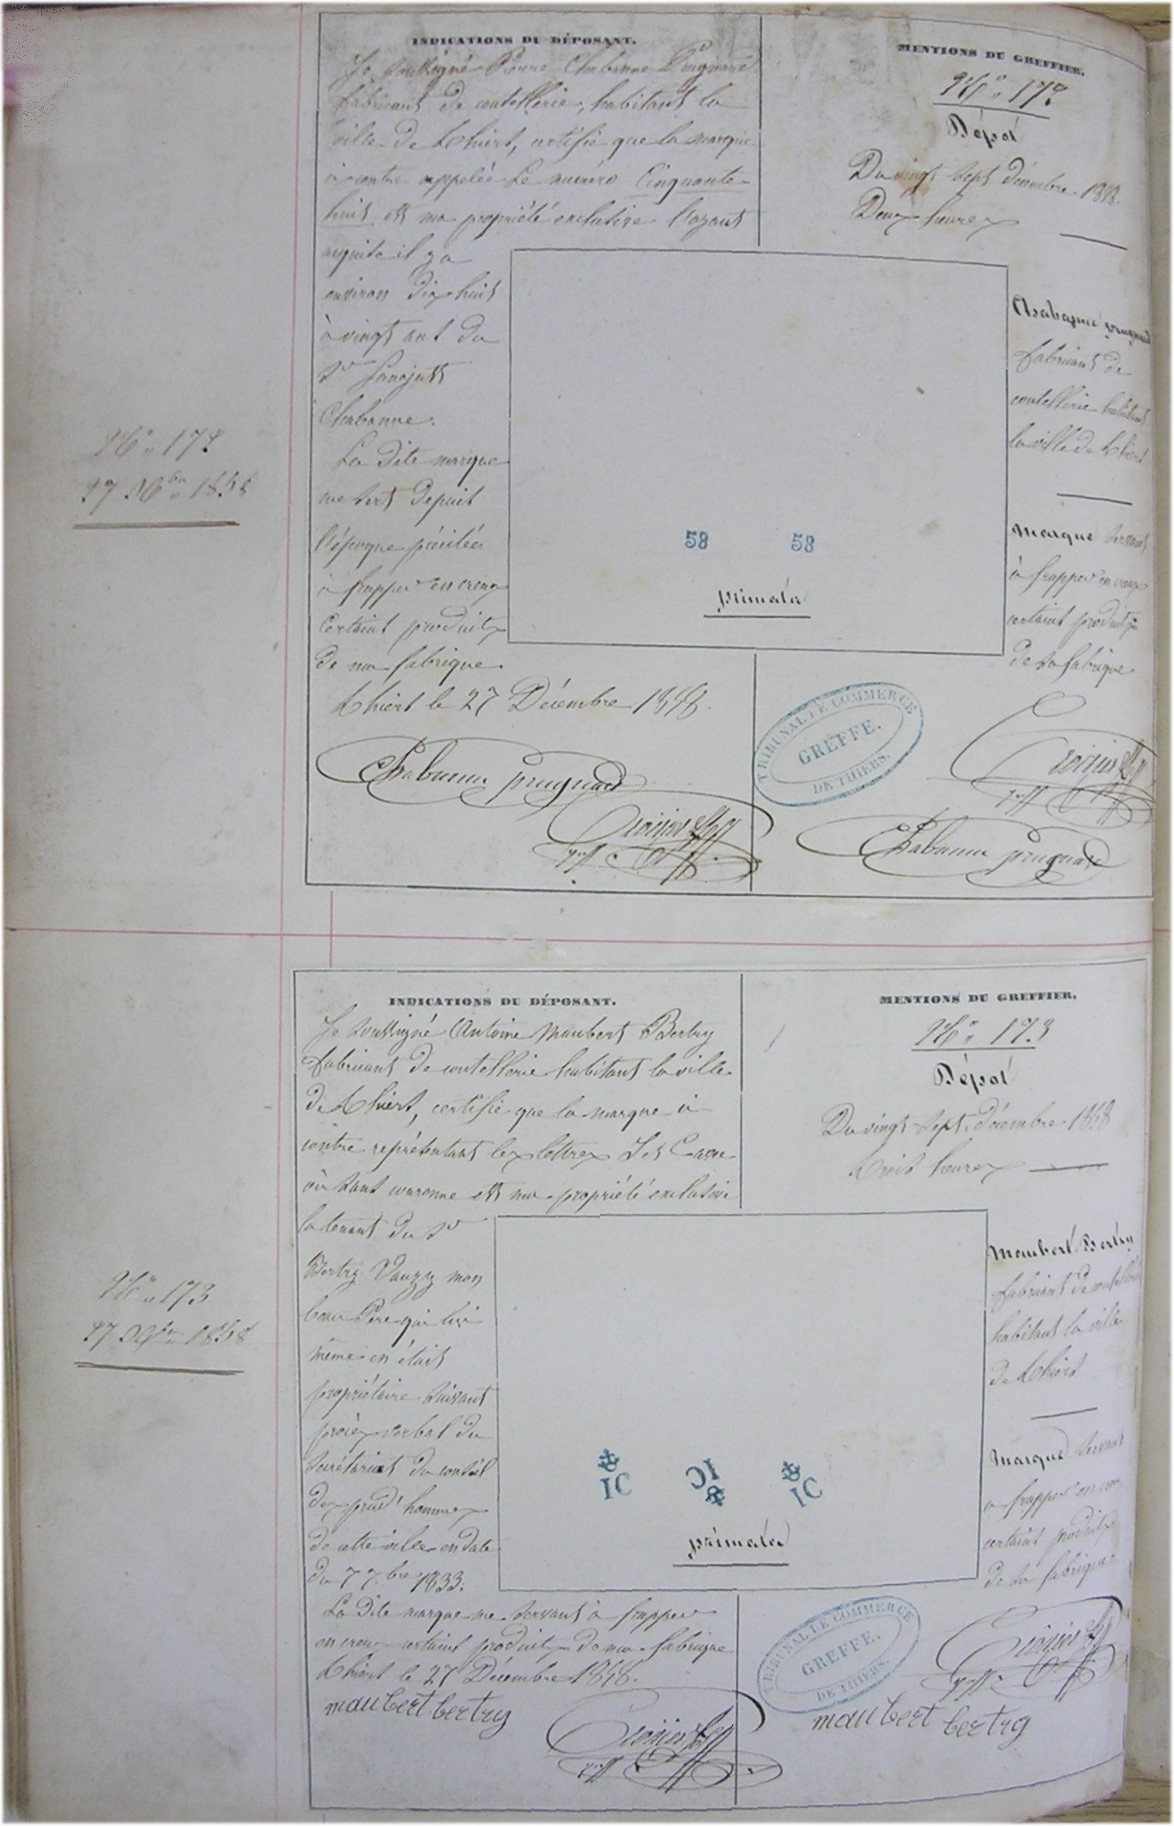 INDICATIONS DU DÉPOSANT.
Je soussigné Pierre Chabanne Prugnard
fabricant de coutellerie, habitant la
ville de Thiers, certifie que la marque
ci contre appelée Le numéro Cinquante
huit est ma propriété exclusive l'ayant
acquise il y a
environ dix huit
à vingt ans du
Sr
Chabanne.
La dite marque
me sert depuis
l'époque précitée
à frapper en creux
certains produits
de ma fabrique.
Thiers le 27 Décembre 1858.
Chabanne prugnard
MENTIONS DU GREFFIER.
No 172
Dépôt
Du vingt sept décembre 1858.
Deux heures
Chabanne prugnard
fabricant de
coutellerie habitant
la ville de Thiers
Marque servant
à frapper en creux
certains produits
de sa fabrique
58 58
primata
TRIBUNAL DE COMMERCE
GREFFE.
DE THIERS.
Chabanne prugnard
No 172
27 Xbre 1858
INDICATIONS DU DÉPOSANT.
Je soussigné Antoine Maubert Bertry
fabricant de coutellerie habitant la ville
de Thiers, certifie que la marque ci
contre représentant les lettres I et C avec
couronne est ma propriété exclusive
la tenant du Sr
Bertry Vauzy mon
beau Père qui lui
même en était
propriétaire suivant
procès verbal du
Secrétariat du conseil
des prud'hommes
de cette ville en date
du 7 7bre 1833.
La dite marque me servant à frapper
en creux certains produits de ma fabrique
Thiers le 27 Décembre 1858.
maubert bertry
MENTIONS DU GREFFIER.
No 173
Dépôt
Du vingt sept décembre 1858
trois heures
Maubert Bertry
fabricant de coutellerie
habitant la ville
de Thiers
Marque servant
à frapper en creux
certains produits
de sa fabrique
IC IC IC
primata
TRIBUNAL DE COMMERCE
GREFFE.
DE THIERS.
maubert bertry
No 173
27 Xbre 1858